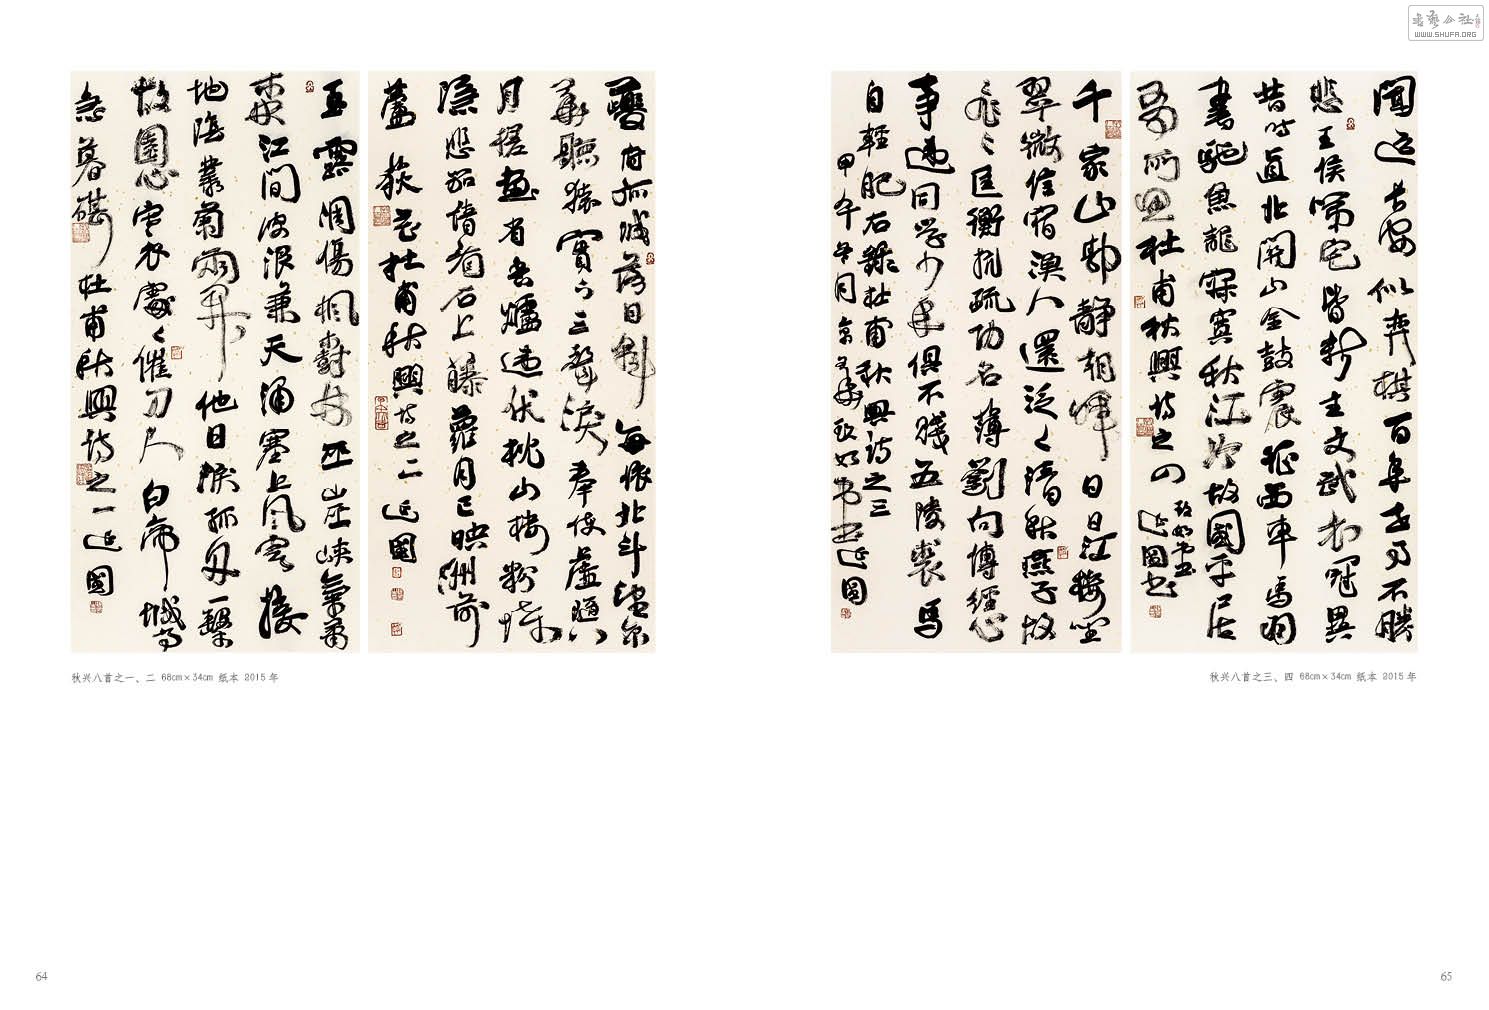 玉露凋傷楓樹林巫山巫峽氣蕭
森江間波浪兼天湧塞上風雲接
地陰叢菊兩開他日淚孤舟一繫
故園心寒衣處々催刀尺白帝城高
急暮碪 杜甫秋興詩之一 延國
夔府孤城落日斜每依北斗望京
華聽猿實下三聲淚奉使虛隨八
月槎畫省香爐違伏枕山樓粉堞
隱悲笳請看石上藤蘿月已映洲前
蘆荻花 杜甫秋興詩之二 延國
秋兴八首之一、二 68cm×34cm 纸本 2015年
64
千家山郭靜朝暉日日江樓坐
翠微信宿漁人還泛々清秋燕子故
飛々匡衡抗疏功名薄劉向傳經心
事違同學少年俱不賤五陵裘馬
自輕肥右錄杜甫秋興詩之三
甲午冬月京 延國
聞道長安似弈棋百年世事不勝
悲王侯第宅皆新主文武衣冠異
昔時直北關山金鼓震征西車馬羽
書馳魚龍寂寞秋江冷故國平居
有所思 杜甫秋興詩之四
延國書
秋兴八首之三、四 68cm×34cm 纸本 2015年
65
WWW.SHUFA.ORG